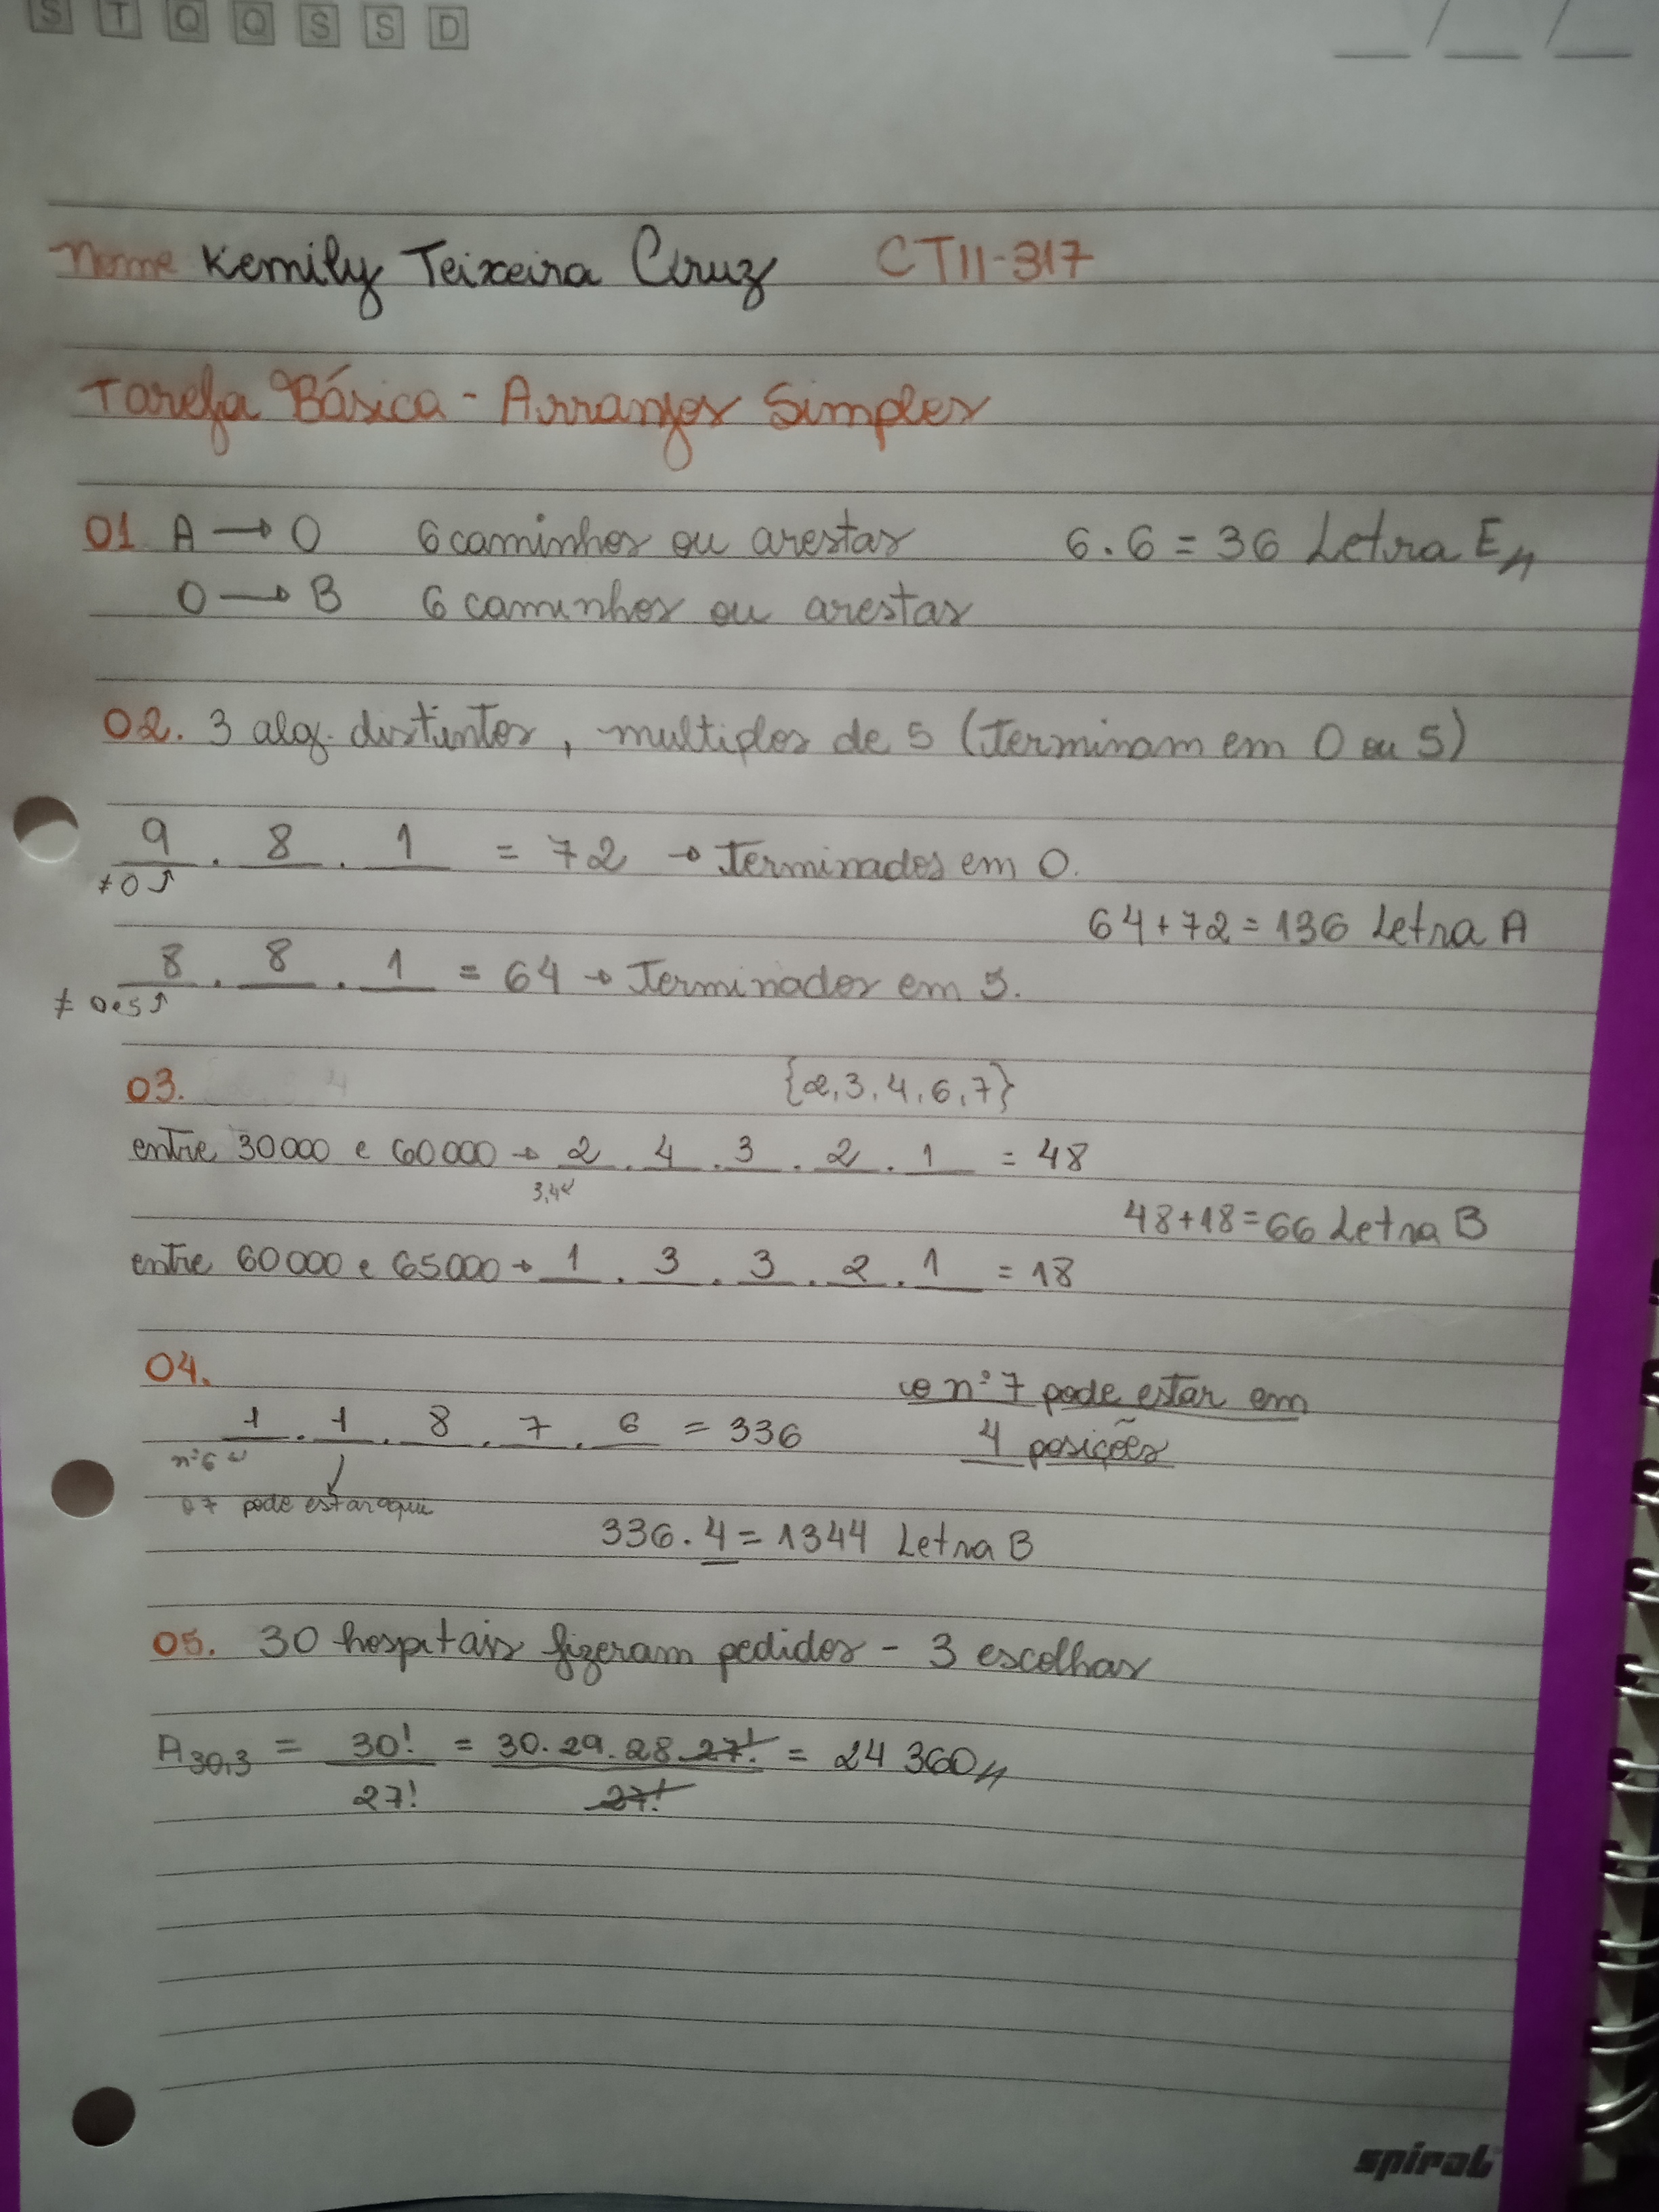 S T Q Q S S D
__/__/__
Nome Kemily Teixeira Cruz CTII-317
Tarefa Básica - Arranjos Simples
01 A → O 6 caminhos ou arestas 6.6 = 36 Letra E
O → B 6 caminhos ou arestas
02. 3 alg. distintos, multiplos de 5 (Terminam em 0 ou 5)
9 . 8 . 1 = 72 → Terminados em 0.
≠0
64+72=136 Letra A
8 . 8 . 1 = 64 → Terminados em 5.
≠ 0 e 5
03.
{2,3,4,6,7}
entre 30000 e 60000 → 2 . 4 . 3 . 2 . 1 = 48
3,4
48+18=66 Letra B
entre 60000 e 65000 → 1 . 3 . 3 . 2 . 1 = 18
04.
o n° 7 pode estar em
1 . 1 . 8 . 7 . 6 = 336
4 posições
n°6
o 7 pode estar aqui
336.4=1344 Letra B
05. 30 hospitais fizeram pedidos - 3 escolhas
A30,3 = 30!/27! = 30.29.28.27!/27! = 24 360
spiral